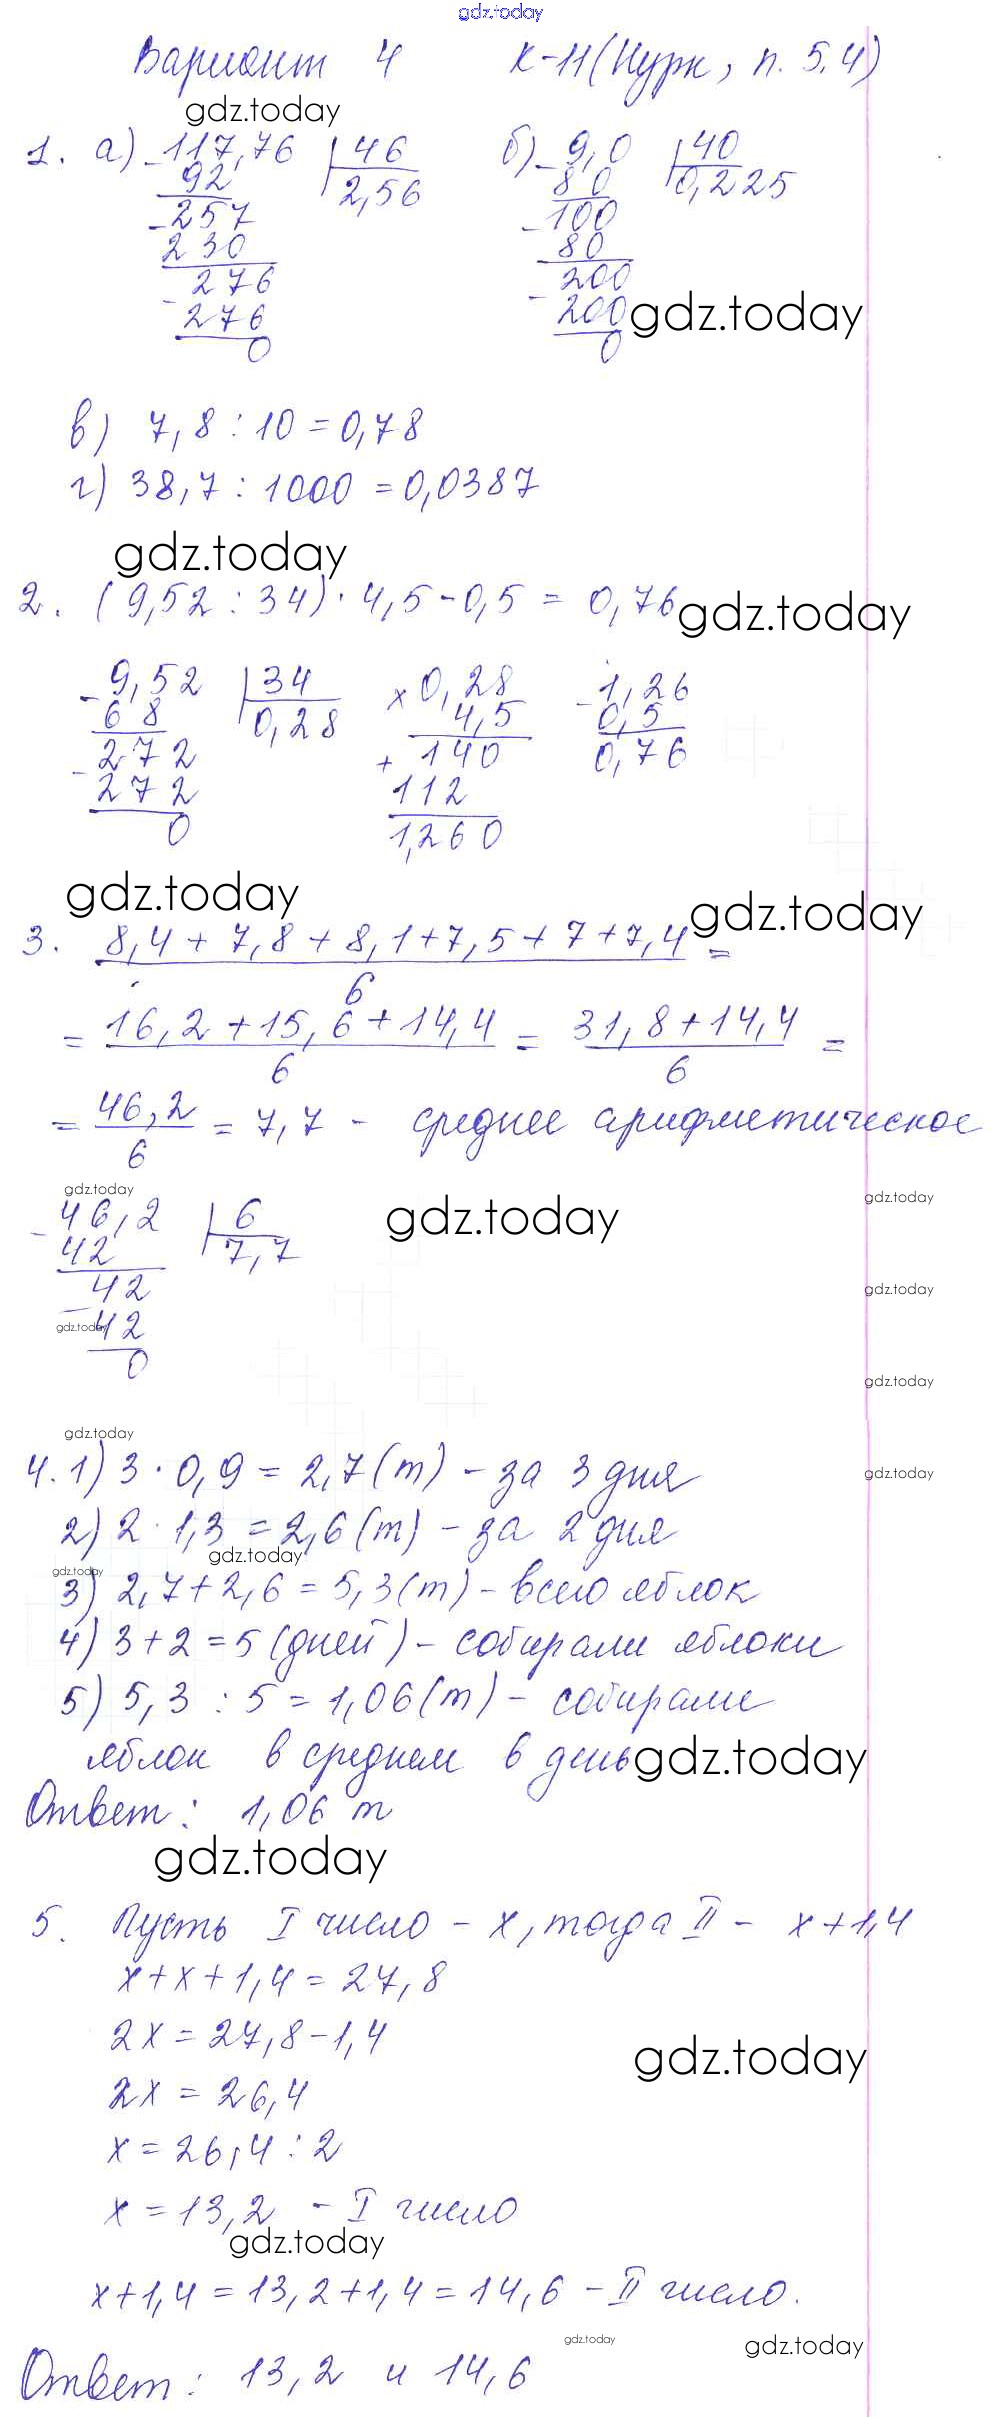 gdz.today
Вариант 4 К-11 (Нурк, п. 5.4)
gdz.today
1. а) -117,76 | 46 б) -9,0 | 40
92 2,56 80 0,225
-257 -100
230 80
-276 -200
276 200 gdz.today
0 0
в) 7,8 : 10 = 0,78
г) 38,7 : 1000 = 0,0387
gdz.today
2. (9,52 : 34) · 4,5 - 0,5 = 0,76 gdz.today
-9,52 | 34 × 0,28 -1,26
68 0,28 4,5 0,5
-272 + 140 0,76
272 112
0 1,260
gdz.today gdz.today
3. 8,4 + 7,8 + 8,1 + 7,5 + 7 + 7,4 =
6
= 16,2 + 15,6 + 14,4 = 31,8 + 14,4 =
6 6
= 46,2 = 7,7 - среднее арифметическое
6
gdz.today gdz.today gdz.today
-46,2 | 6
42 7,7
-42 gdz.today
gdz.today 42
0
gdz.today
gdz.today
4. 1) 3 · 0,9 = 2,7 (т) - за 3 дня gdz.today
2) 2 · 1,3 = 2,6 (т) - за 2 дня
gdz.today
gdz.today
3) 2,7 + 2,6 = 5,3 (т) - всего яблок
4) 3 + 2 = 5 (дней) - собирали яблоки
5) 5,3 : 5 = 1,06 (т) - собирали
яблок в среднем в день gdz.today
Ответ: 1,06 т
gdz.today
5. Пусть I число - x, тогда II - x + 1,4
x + x + 1,4 = 27,8
2x = 27,8 - 1,4
gdz.today
2x = 26,4
x = 26,4 : 2
x = 13,2 - I число
gdz.today
x + 1,4 = 13,2 + 1,4 = 14,6 - II число.
gdz.today gdz.today
Ответ: 13,2 и 14,6